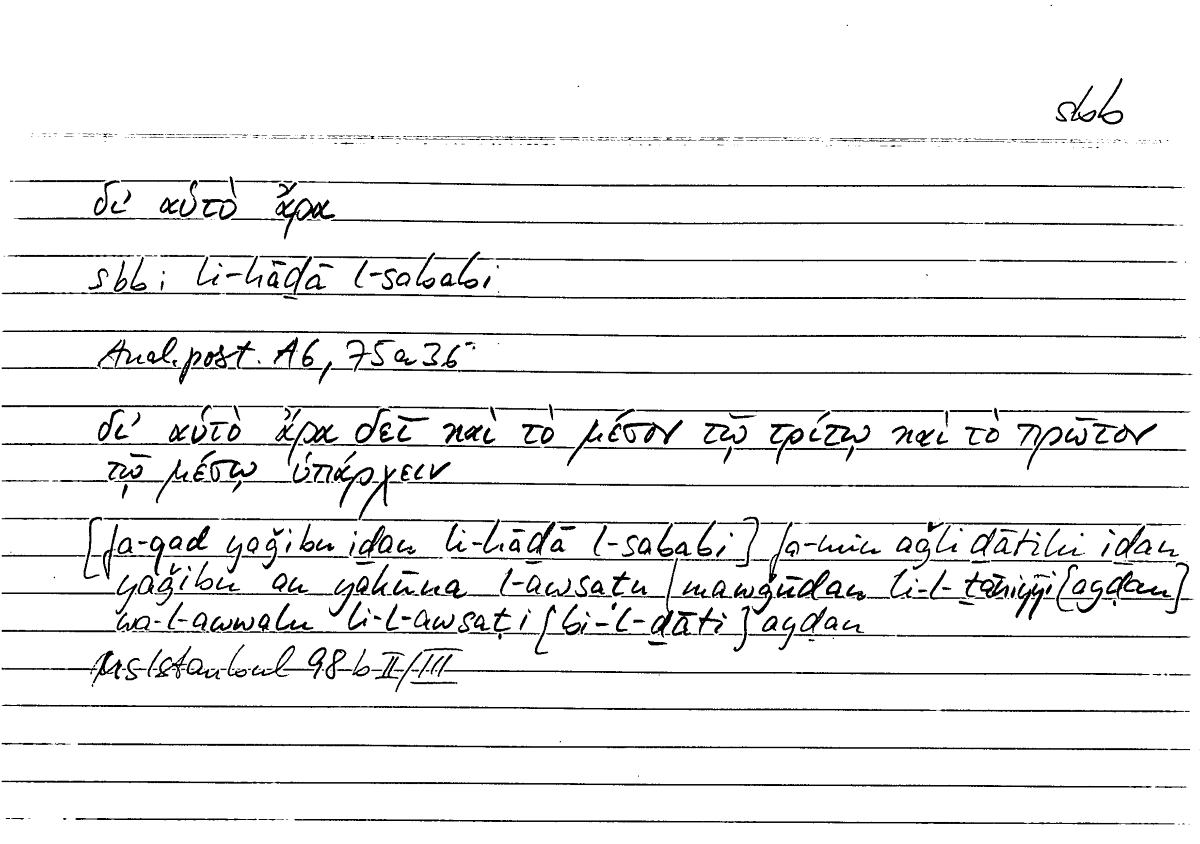 sbb
δι' αὐτὸ ἄρα
sbb: li-hāḏā l-sababi
Anal. post. A6, 75a36
δι' αὐτὸ ἄρα δεῖ καὶ τὸ μέσον τῷ τρίτῳ καὶ τὸ πρῶτον
τῷ μέσῳ ὑπάρχειν
[fa-qad yaǧibu iḏan li-hāḏā l-sababi] fa-min aǧli ḏātihi iḏan
yaǧibu an yakūna l-awsaṭu mawǧūdan li-l- [ayḍan]
wa-l-awwalu li-l-awsaṭi [bi-l-ḏāti] ayḍan
Ms Istanbul 98 b II/III